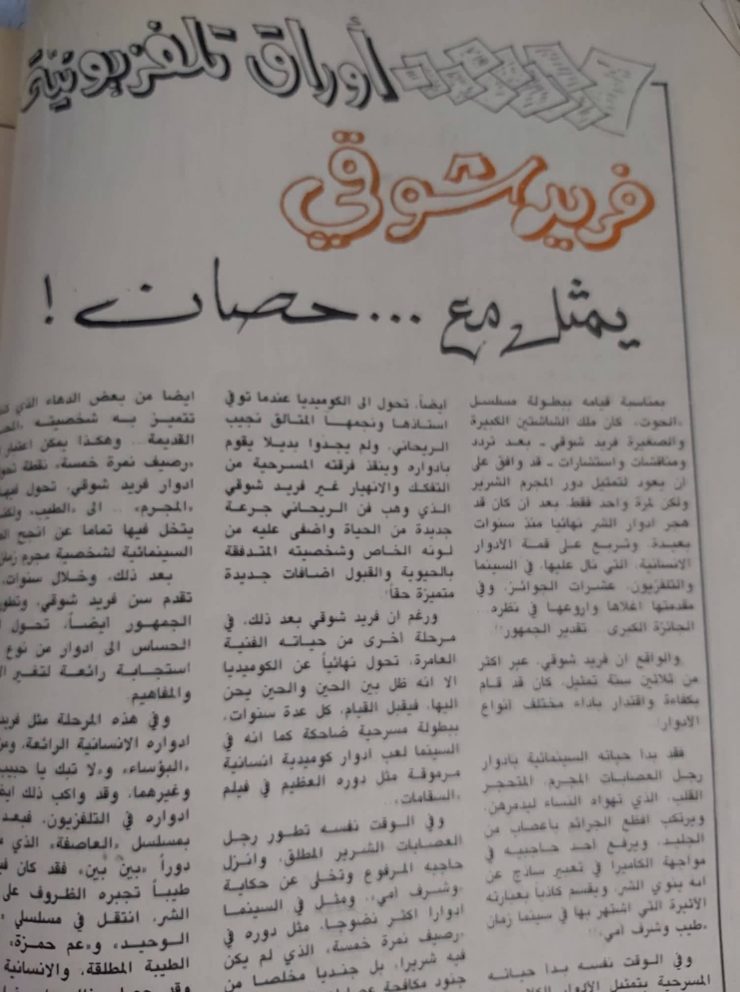 أوراق تلفزيونيّة
فريد شوقي
يمثل مع ... حصان !
بمناسبة قيامه ببطولة مسلسل
«الحوت»، كان ملك الشاشتين الكبيرة
والصغيرة فريد شوقي - بعد تردد
ومناقشات واستشارات - قد وافق على
ان يعود لتمثيل دور المجرم الشرير
ولكن لمرة واحد فقط، بعد ان كان قد
هجر ادوار الشر نهائيا منذ سنوات
بعيدة، وتربع على قمة الأدوار
الانسانية، التي نال عليها، في السينما
والتلفزيون، عشرات الجوائز، وفي
مقدمتها اغلاها واروعها في نظره..
الجائزة الكبرى.. تقدير الجمهور!
والواقع ان فريد شوقي، عبر اكثر
من ثلاثين سنة تمثيل، كان قد قام
بكفاءة واقتدار باداء مختلف انواع
الادوار!
فقد بدا حياته السينمائية بادوار
رجل العصابات المجرم، المتحجر
القلب، الذي تهواه النساء ليدمرهن،
ويرتكب افظع الجرائم باعصاب من
الجليد، ويرفع احد حاجبيه في
مواجهة الكاميرا في تعبير ساذج عن
انه ينوي الشر، ويقسم كاذباً بعبارته
الأثيرة التي اشتهر بها في سينما زمان
«طيب وشرف امي»!
وفي الوقت نفسه بدا حياته
المسرحية بتمثيل الأدوار
ايضاً، تحول الى الكوميديا عندما توفي
استاذها ونجمها المتالق نجيب
الريحاني، ولم يجدوا بديلا يقوم
بادواره وينقذ فرقته المسرحية من
التفكك والانهيار غير فريد شوقي
الذي وهب فن الريحاني جرعة
جديدة من الحياة واضفى عليه من
لونه الخاص وشخصيته المتدفقة
بالحيوية والقبول اضافات جديدة
متميزة حقاً!
ورغم ان فريد شوقي بعد ذلك، في
مرحلة أخرى من حياته الفنية
العامرة، تحول نهائياً عن الكوميديا
الا انه ظل بين الحين والحين يحن
اليها، فيقبل القيام، كل عدة سنوات،
ببطولة مسرحية ضاحكة كما انه في
السينما لعب ادوار كوميدية انسانية
مرموقة مثل دوره العظيم في فيلم
«السقامات»..
وفي الوقت نفسه تطور رجل
العصابات الشرير المطلق، وانزل
حاجبه المرفوع وتخلى عن حكاية
«وشرف امي».. ومثل في السينما
ادوارا اكثر نضوجا، مثل دوره في
«رصيف نمرة خمسة»، الذي لم يكن
فيه شريرا، بل جنديا مخلصا من
جنود مكافحة
ايضا من بعض الدهاء الذي
تتميز به شخصيته
القديمة.. وهكذا يمكن اعتبار
«رصيف نمرة خمسة» نقطة
ادوار فريد شوقي، تحول فيها
«المجرم».. الى «الطيب»
يتخل فيها تماما عن انجح
السينمائية لشخصية مجرم زمان
بعد ذلك، وخلال سنوات،
تقدم سن فريد شوقي،
الجمهور ايضاً، تحول
الحساس الى ادوار من نوع
استجابة رائعة لتغير
والمفاهيم
وفي هذه المرحلة مثل فريد
ادواره الانسانية الرائعة،
«البؤساء» و«لا تبك يا حبيب
وغيرهما، وقد واكب ذلك
ادواره في التلفزيون، فبعد
بمسلسل «العاصفة» الذي
دوراً «بين بين» فقد كان
طيباً تجبره الظروف على
الشر، انتقل في مسلسلي
الوحيد» و«عم حمزة»
الطيبة المطلقة، والانسانية